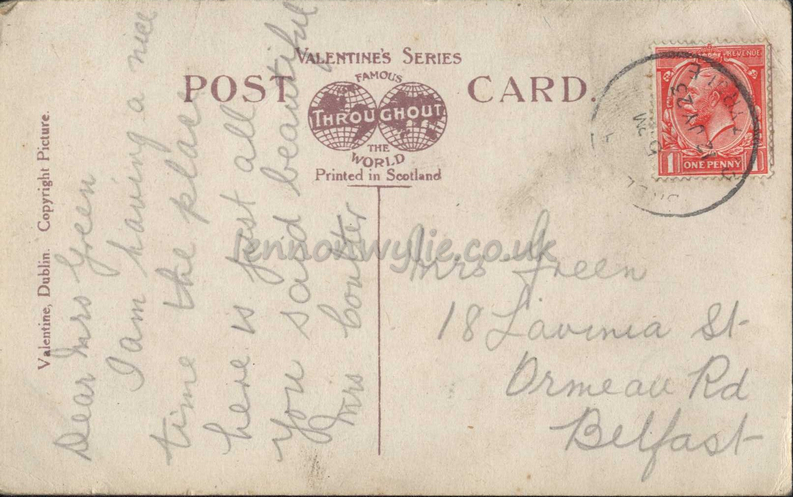 VALENTINE'S SERIES
POST CARD.
FAMOUS
THROUGHOUT
THE
WORLD
Printed in Scotland
Valentine, Dublin. Copyright Picture.
Dear Mrs Green
I am having a nice
time the place
here is just all
you said beautiful
Mrs Coulter
Mrs Green
18 Lavinia St
Ormeau Rd
Belfast
REVENUE
1 ONE PENNY 1
JY 23
lennonwylie.co.uk